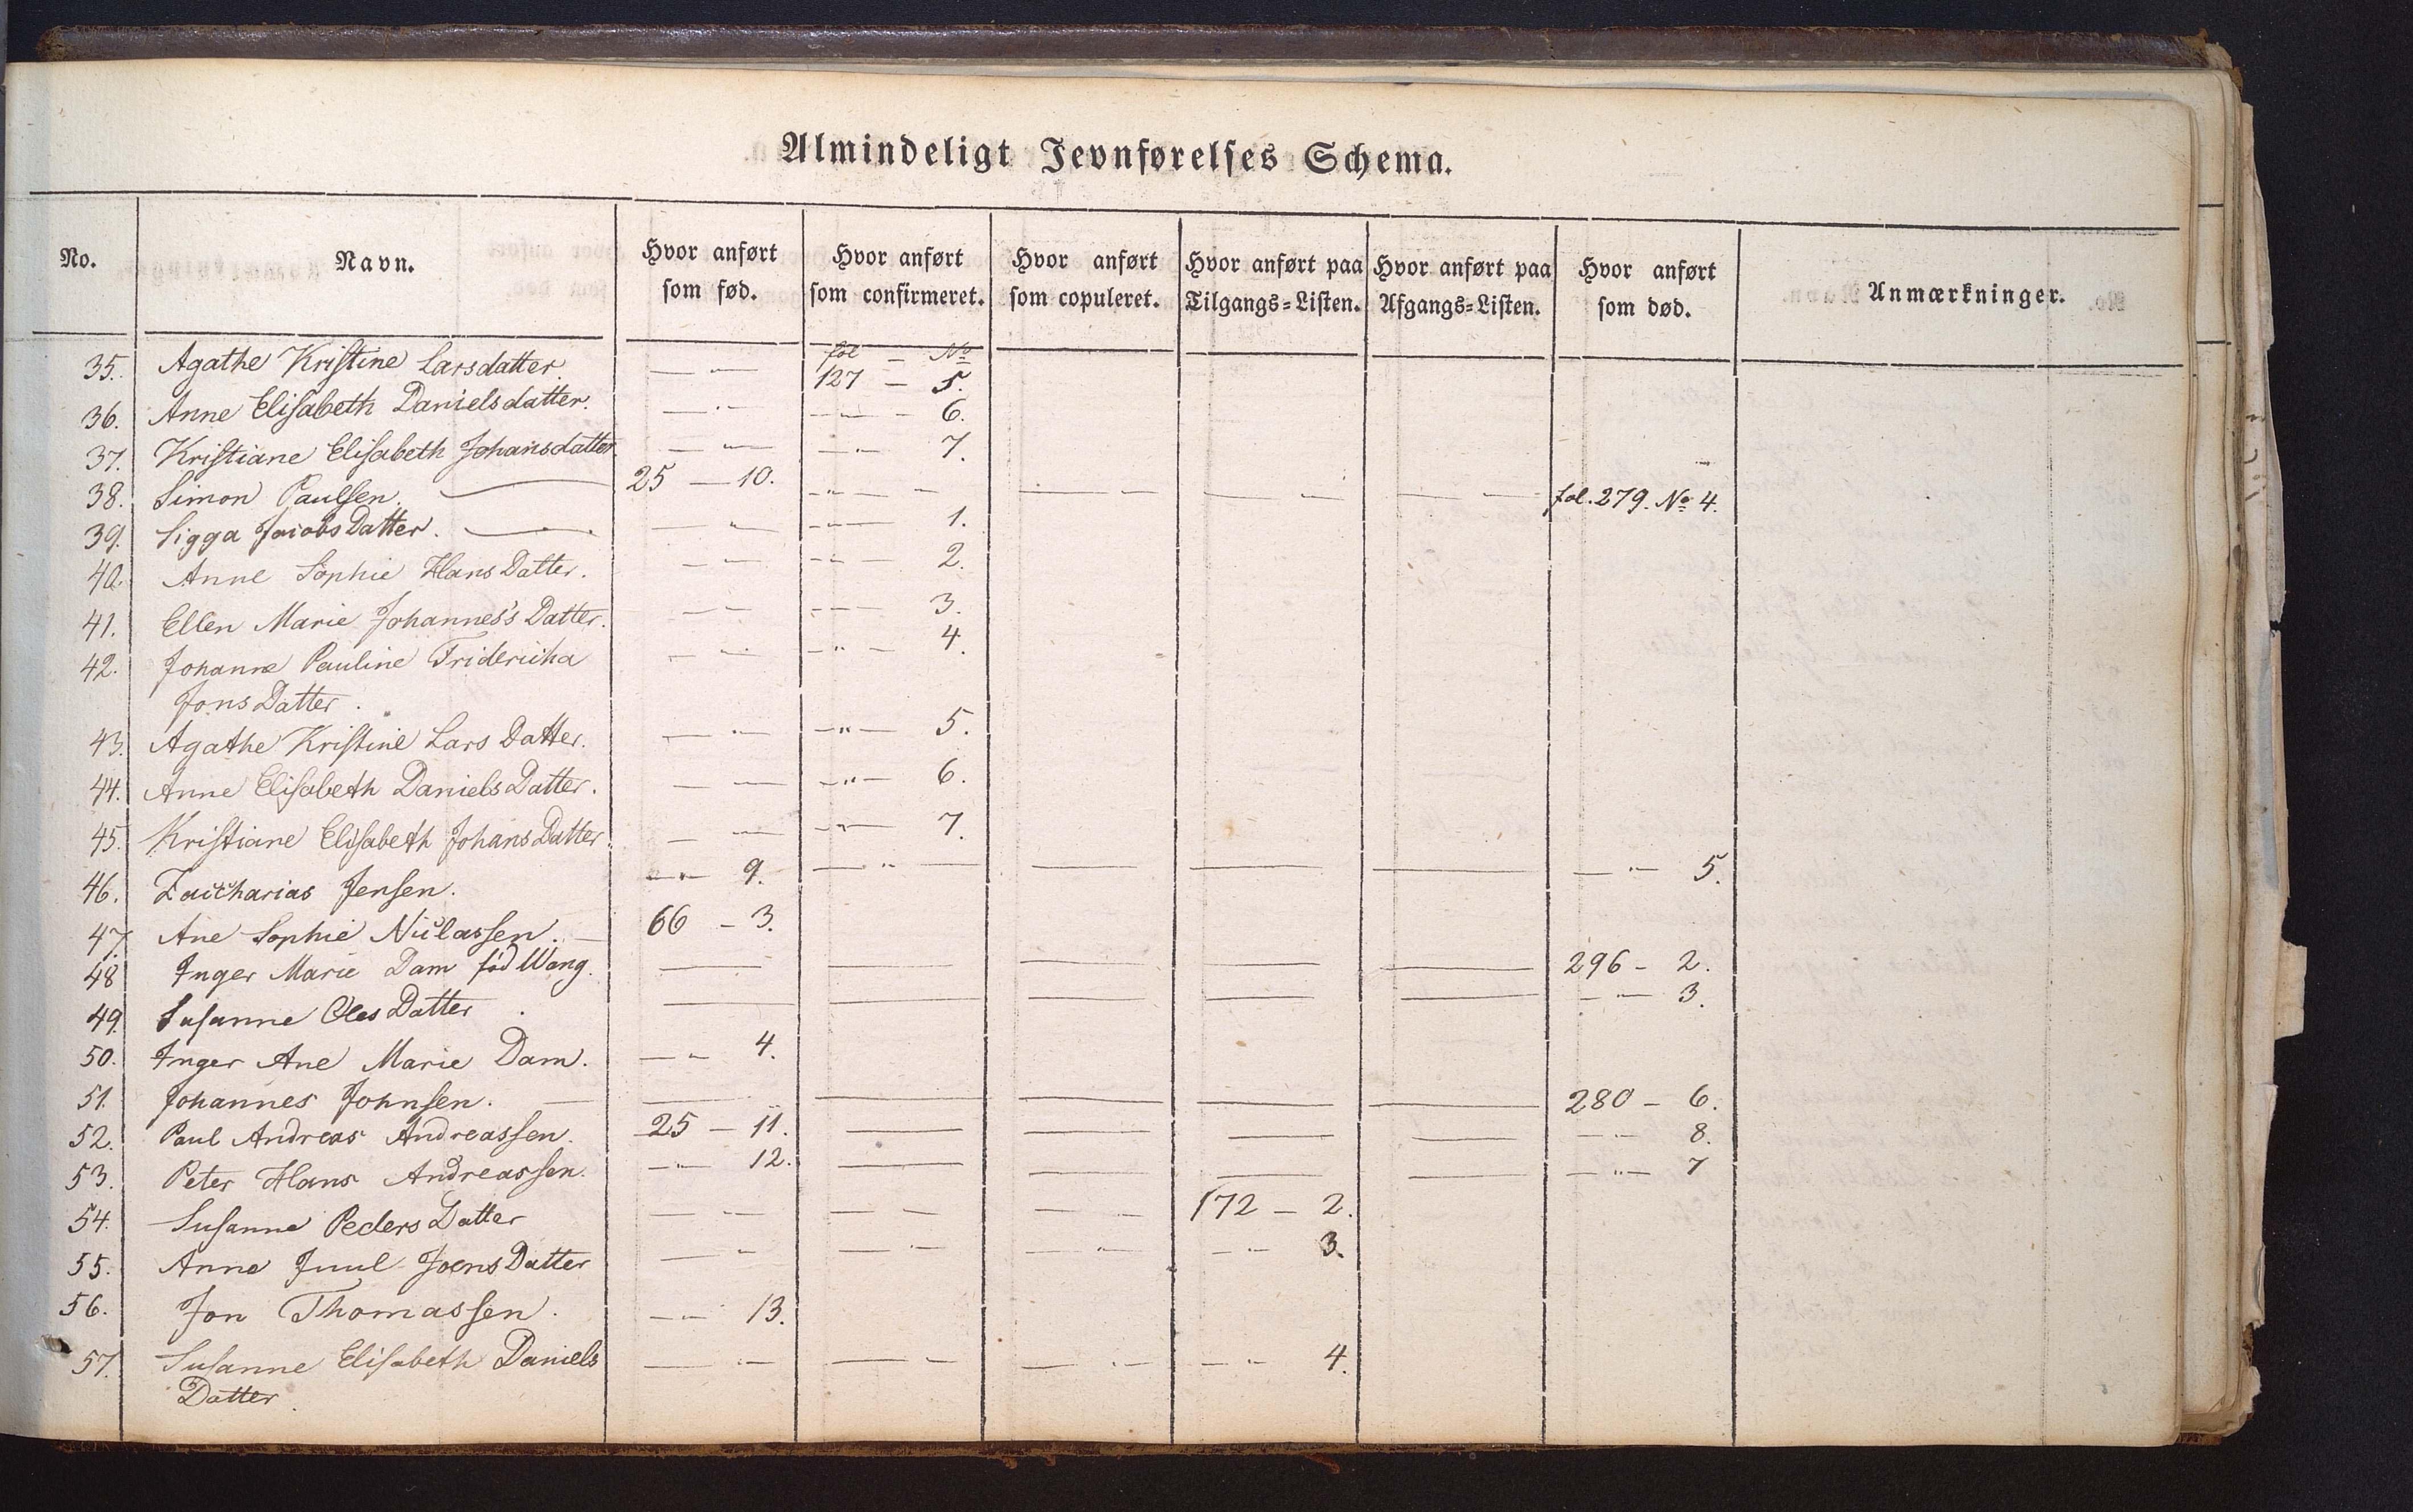 Almindeligt Jevnførelses Schema.
No. Navn. Hvor anført som fød. Hvor anført som confirmeret. Hvor anført som copuleret. Hvor anført paa Tilgangs-Listen. Hvor anført paa Afgangs-Listen. Hvor anført som død. Anmærkninger.
fol — No
35. Agathe Kristine Larsdatter — " — 127 — 5.
36. Anne Elisabeth Danielsdatter. — " — — " — 6.
37. Kristiane Elisabeth Johansdatter — " — — " — 7.
38. Simon Paulsen. 25 — 10. — " — — — — — — — fol. 279. No 4.
39. Sigga Jacobs Datter. — " — " — 1.
40. Anne Sophie Hans Datter. — " — — " — 2.
41. Ellen Marie Johannes's Datter. — " — — " — 3.
42. Johanne Pauline Fridericha — " — — " — 4.
Jons Datter.
43. Agathe Kristine Lars Datter. — " — — " — 5.
44. Anne Elisabeth Daniels Datter. — " — — " — 6.
45. Kristiane Elisabeth Johans Datter. — " — — " — 7.
46. Zaccharias Jensen. — " — 9. — " — — — — — " — 5.
47. Ane Sophie Niclassen. — 66 — 3.
48 Inger Marie Dam fød Wang. — — — — — 296 — 2.
49. Susanne Oles Datter — — — — — — " — 3.
50. Inger Ane Marie Dam. — " — 4.
51. Johannes Johnsen. — — — — — — 280 — 6.
52. Paul Andreas Andreassen. 25 — 11. — — — — — " — 8.
53. Peter Hans Andreassen. — " — 12. — — — — — " — 7
54. Susanne Peders Datter — " — — " — — " — 172 — 2.
55. Anne Juul Joens Datter — " — " — — " — — " — 3.
56. Jon Thomassen. — " — 13.
57. Susanne Elisabeth Daniels — " — — " — — " — — " — 4.
Datter.